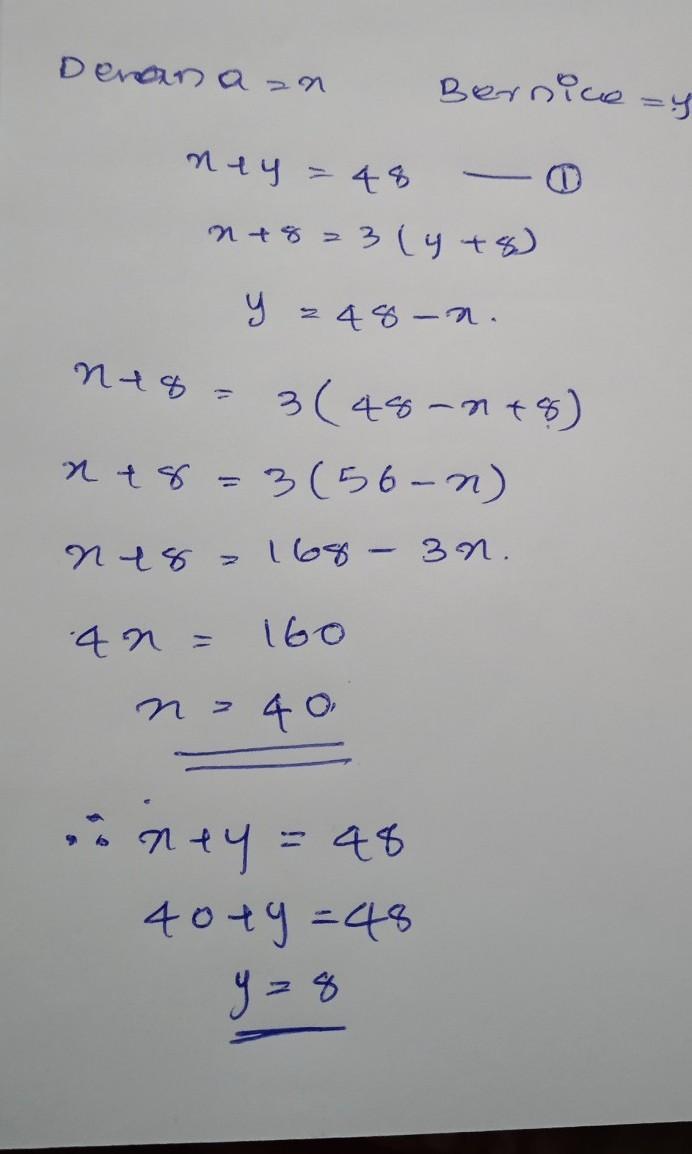 Denana = x Bernice = y
x + y = 48 — ①
x + 8 = 3 ( y + 8 )
y = 48 - x .
x + 8 = 3 ( 48 - x + 8 )
x + 8 = 3 ( 56 - x )
x + 8 = 168 - 3x .
4x = 160
x = 40
∴ x + y = 48
40 + y = 48
y = 8